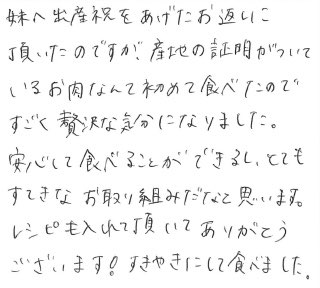 妹へ出産祝をあげたお返しに
頂いたのですが、産地の証明がついて
いるお肉なんて初めて食べたので
すごく贅沢な気分になりました。
安心して食べることができるし、とても
すてきなお取り組みだなと思います。
レシピも入れて頂いてありがとう
ございます!すきやきにして食べました。